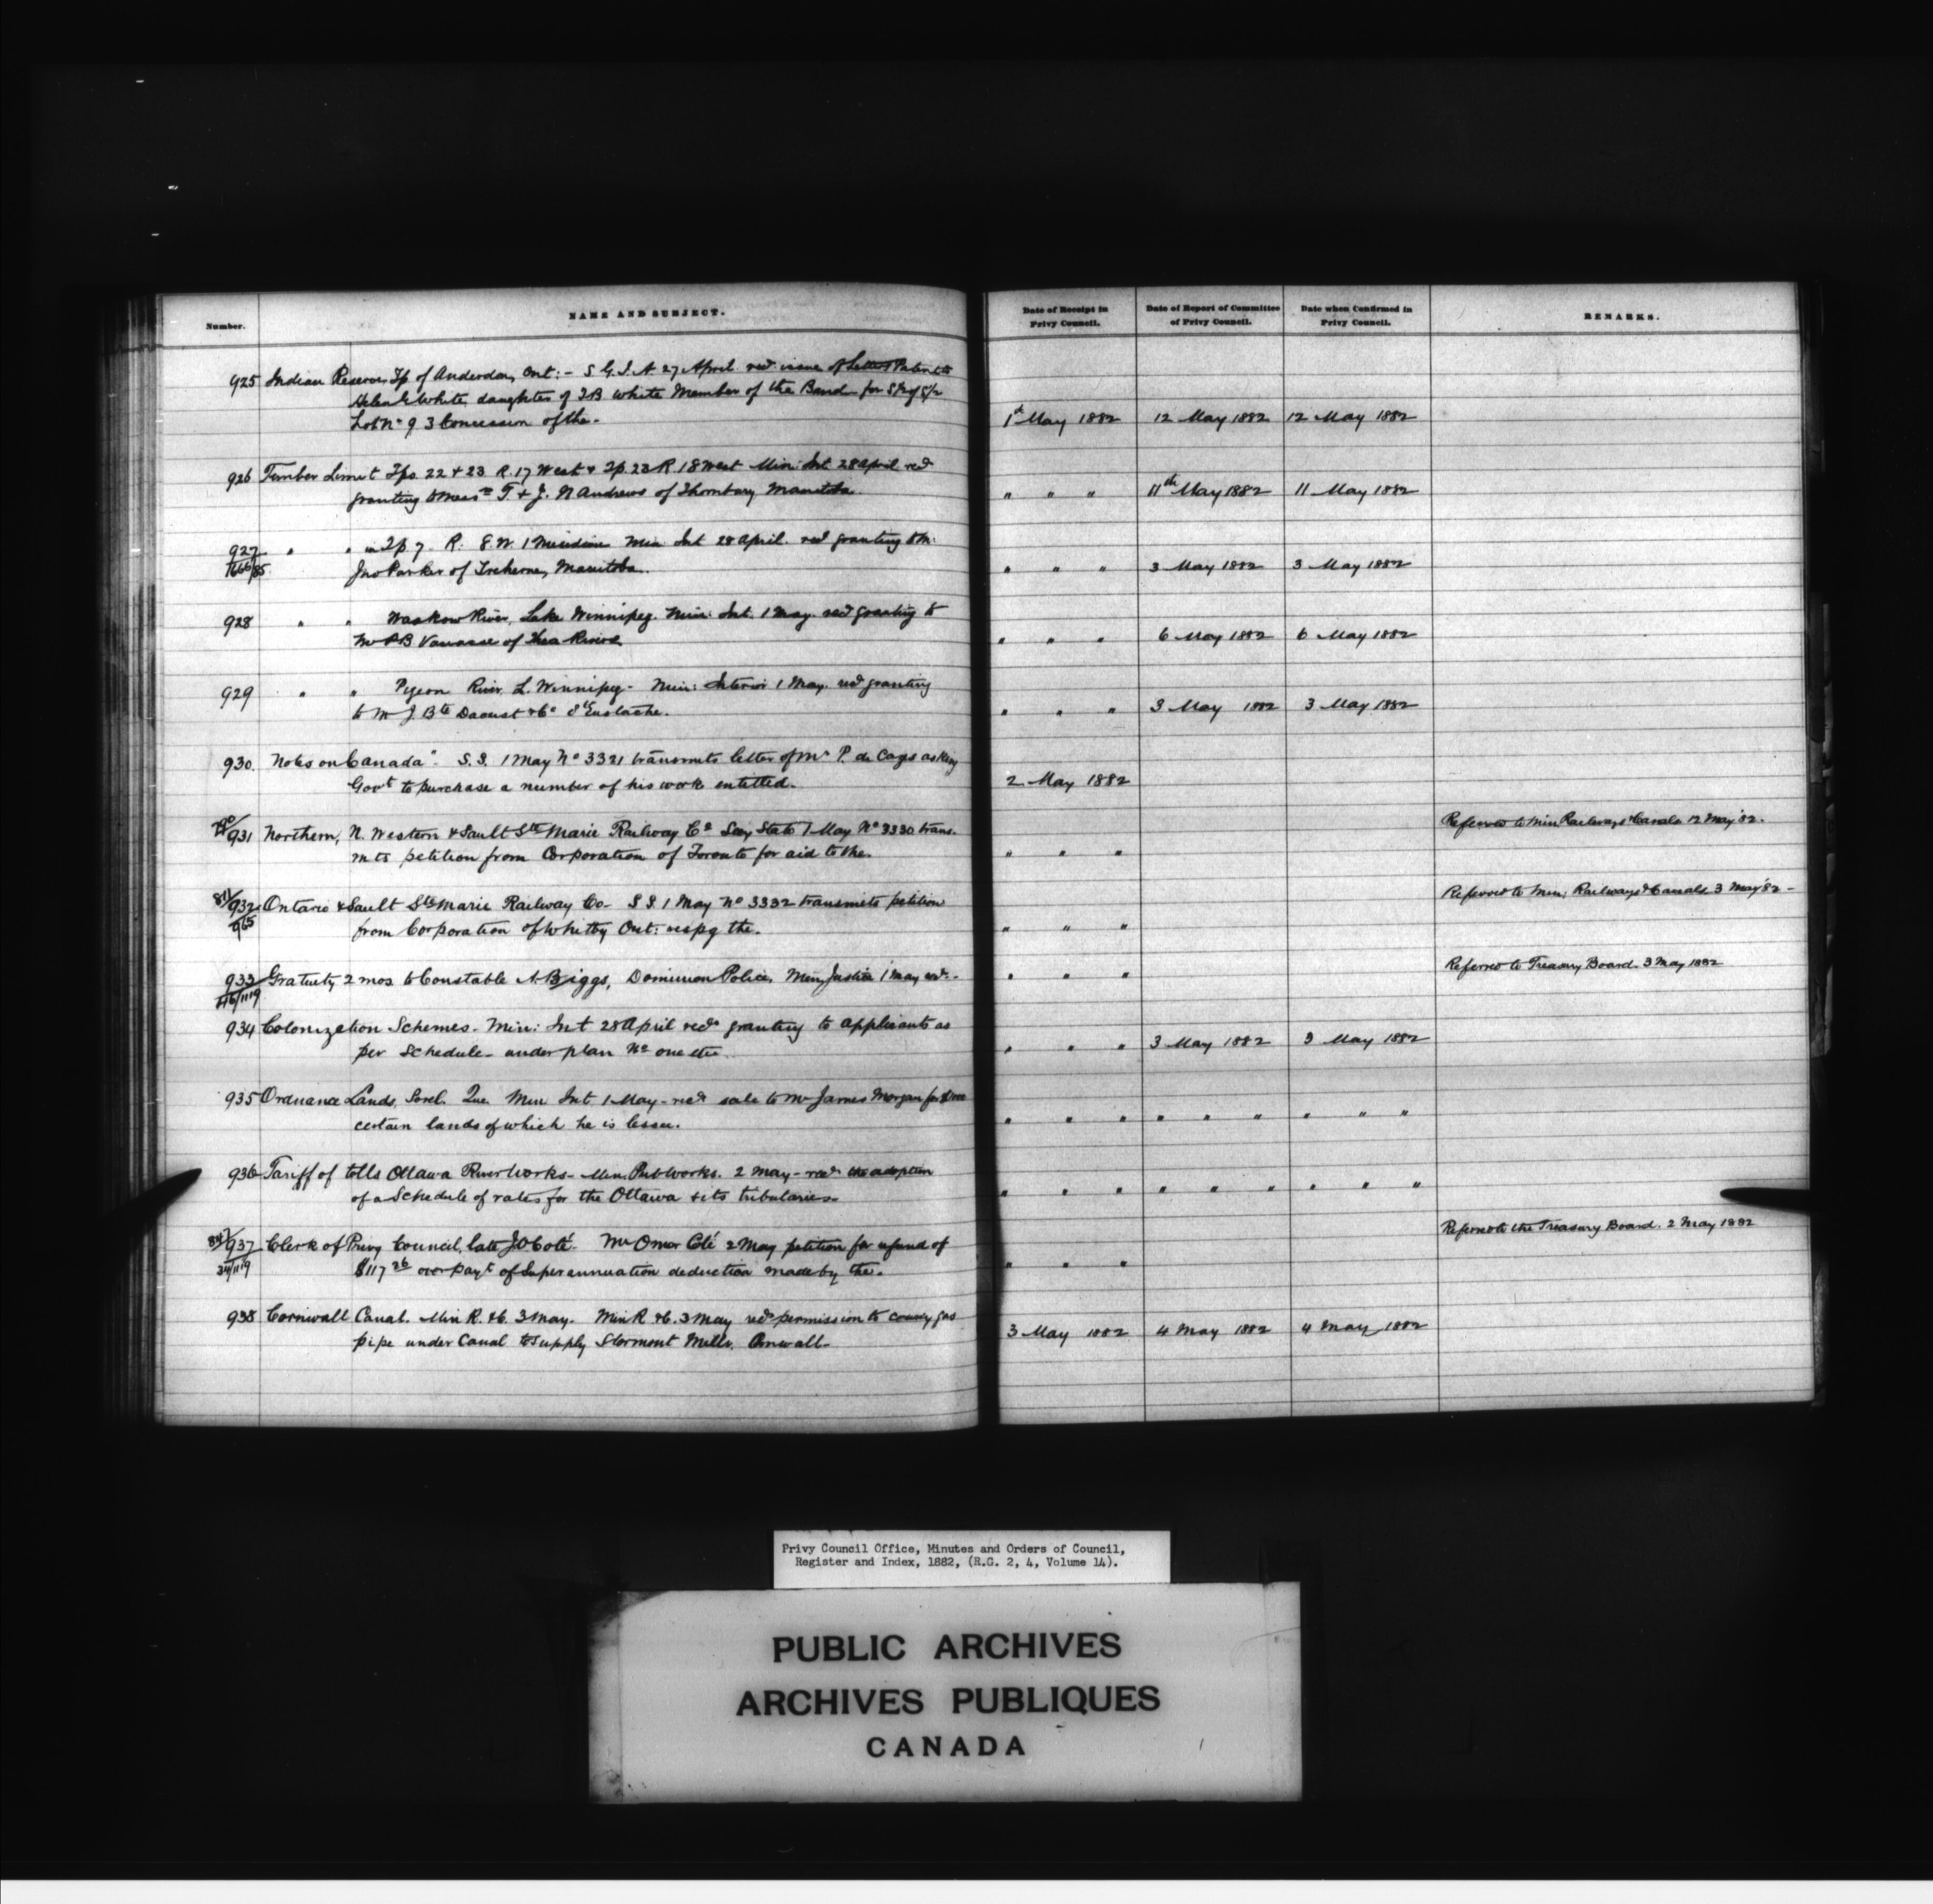 Number.
NAME AND SUBJECT.
Date of Receipt in Privy Council.
Date of Report of Committee of Privy Council.
Date when Confirmed in Privy Council.
REMARKS.
925 Indian Reserve, Tp of Anderdon, Ont:- S.G.I.A. 27 April recd issue of Letters Patent to
Helen White, daughter of J B White Member of the Band for
Lot No 9 3 Concession of the.
1st May 1882 12 May 1882 12 May 1882
926 Timber Limit Tps 22 + 23 R. 17 West + Tp. 23 R 18 West Min: Int 28 April recd
granting to Messrs T. + J. N Andrews of Thornbury Manitoba.
" " " 11th May 1882 11 May 1882
927 " " in Tp 7 R: 8.W. 1 Meridian Min Int 28 April. recd granting to Mr
1666/85
Jno Parker of Treherne, Manitoba.
" " " 3 May 1882 3 May 1882
928 " " Waskow River, Lake Winnipeg. Min: Int. 1 May recd granting to
Mr P B Vanasse of Three Rivers
" " " 6 May 1882 6 May 1882
929 " " Pigeon River, L. Winnipeg- Min: Interior 1 May. recd granting
to Mr J. Bte Daoust & Co St Eustache.
" " " 3 May 1882 3 May 1882
930. Notes on Canada". S.S. 1 May No 3321 transmits letter of Mr P. de Cazes asking
Govt to purchase a number of his work entitled.
2 May 1882
931 Northern, N. Western & Sault Ste Marie Railway Co Secy State 1 May No 3330 trans-
mits petition from Corporation of Toronto for aid to the.
" " "
Referred to Min Railways & Canals 12 May '82.
932 Ontario & Sault Ste Marie Railway Co- S S. 1 May No 3332 transmits petition
965
from Corporation of Whitby Ont: respg the.
" " "
Referred to Min: Railways & Canals 3 May '82 -
933 Gratuity 2 mos to Constable A. Briggs, Dominion Police, Min Justice 1 May recd-
" " "
Referred to Treasury Board. 3 May 1882
934 Colonization Schemes. Min: Int 28 April recds granting to applicants as
per Schedule- under plan No one etc.
" " " 3 May 1882 3 May 1882
935 Ordnance Lands, Sorel, Que Min Int 1 May- recds sale to Mr James Morgan
certain lands of which he is lessee.
" " " " " " " " "
936 Tariff of tolls Ottawa River Works- Min. Pub Works. 2 May- recds the adoption
of a Schedule of rates for the Ottawa & its tributaries-
" " " " " " " " "
937 Clerk of Privy Council, late J O Coté. Mr Omer Coté 2 May petition for refund of
34/1119
$117 26 over payt of Superannuation deduction made by the.
" " "
Referred to the Treasury Board. 2 May 1882
938 Cornwall Canal. Min R. & C. 3 May. Min R & C. 3 May recds permission to convey gas
pipe under Canal to supply Stormont Mills, Cornwall-
3 May 1882 4 May 1882 4 May 1882
Privy Council Office, Minutes and Orders of Council,
Register and Index, 1882, (R.G. 2, 4, Volume 14).
PUBLIC ARCHIVES
ARCHIVES PUBLIQUES
CANADA